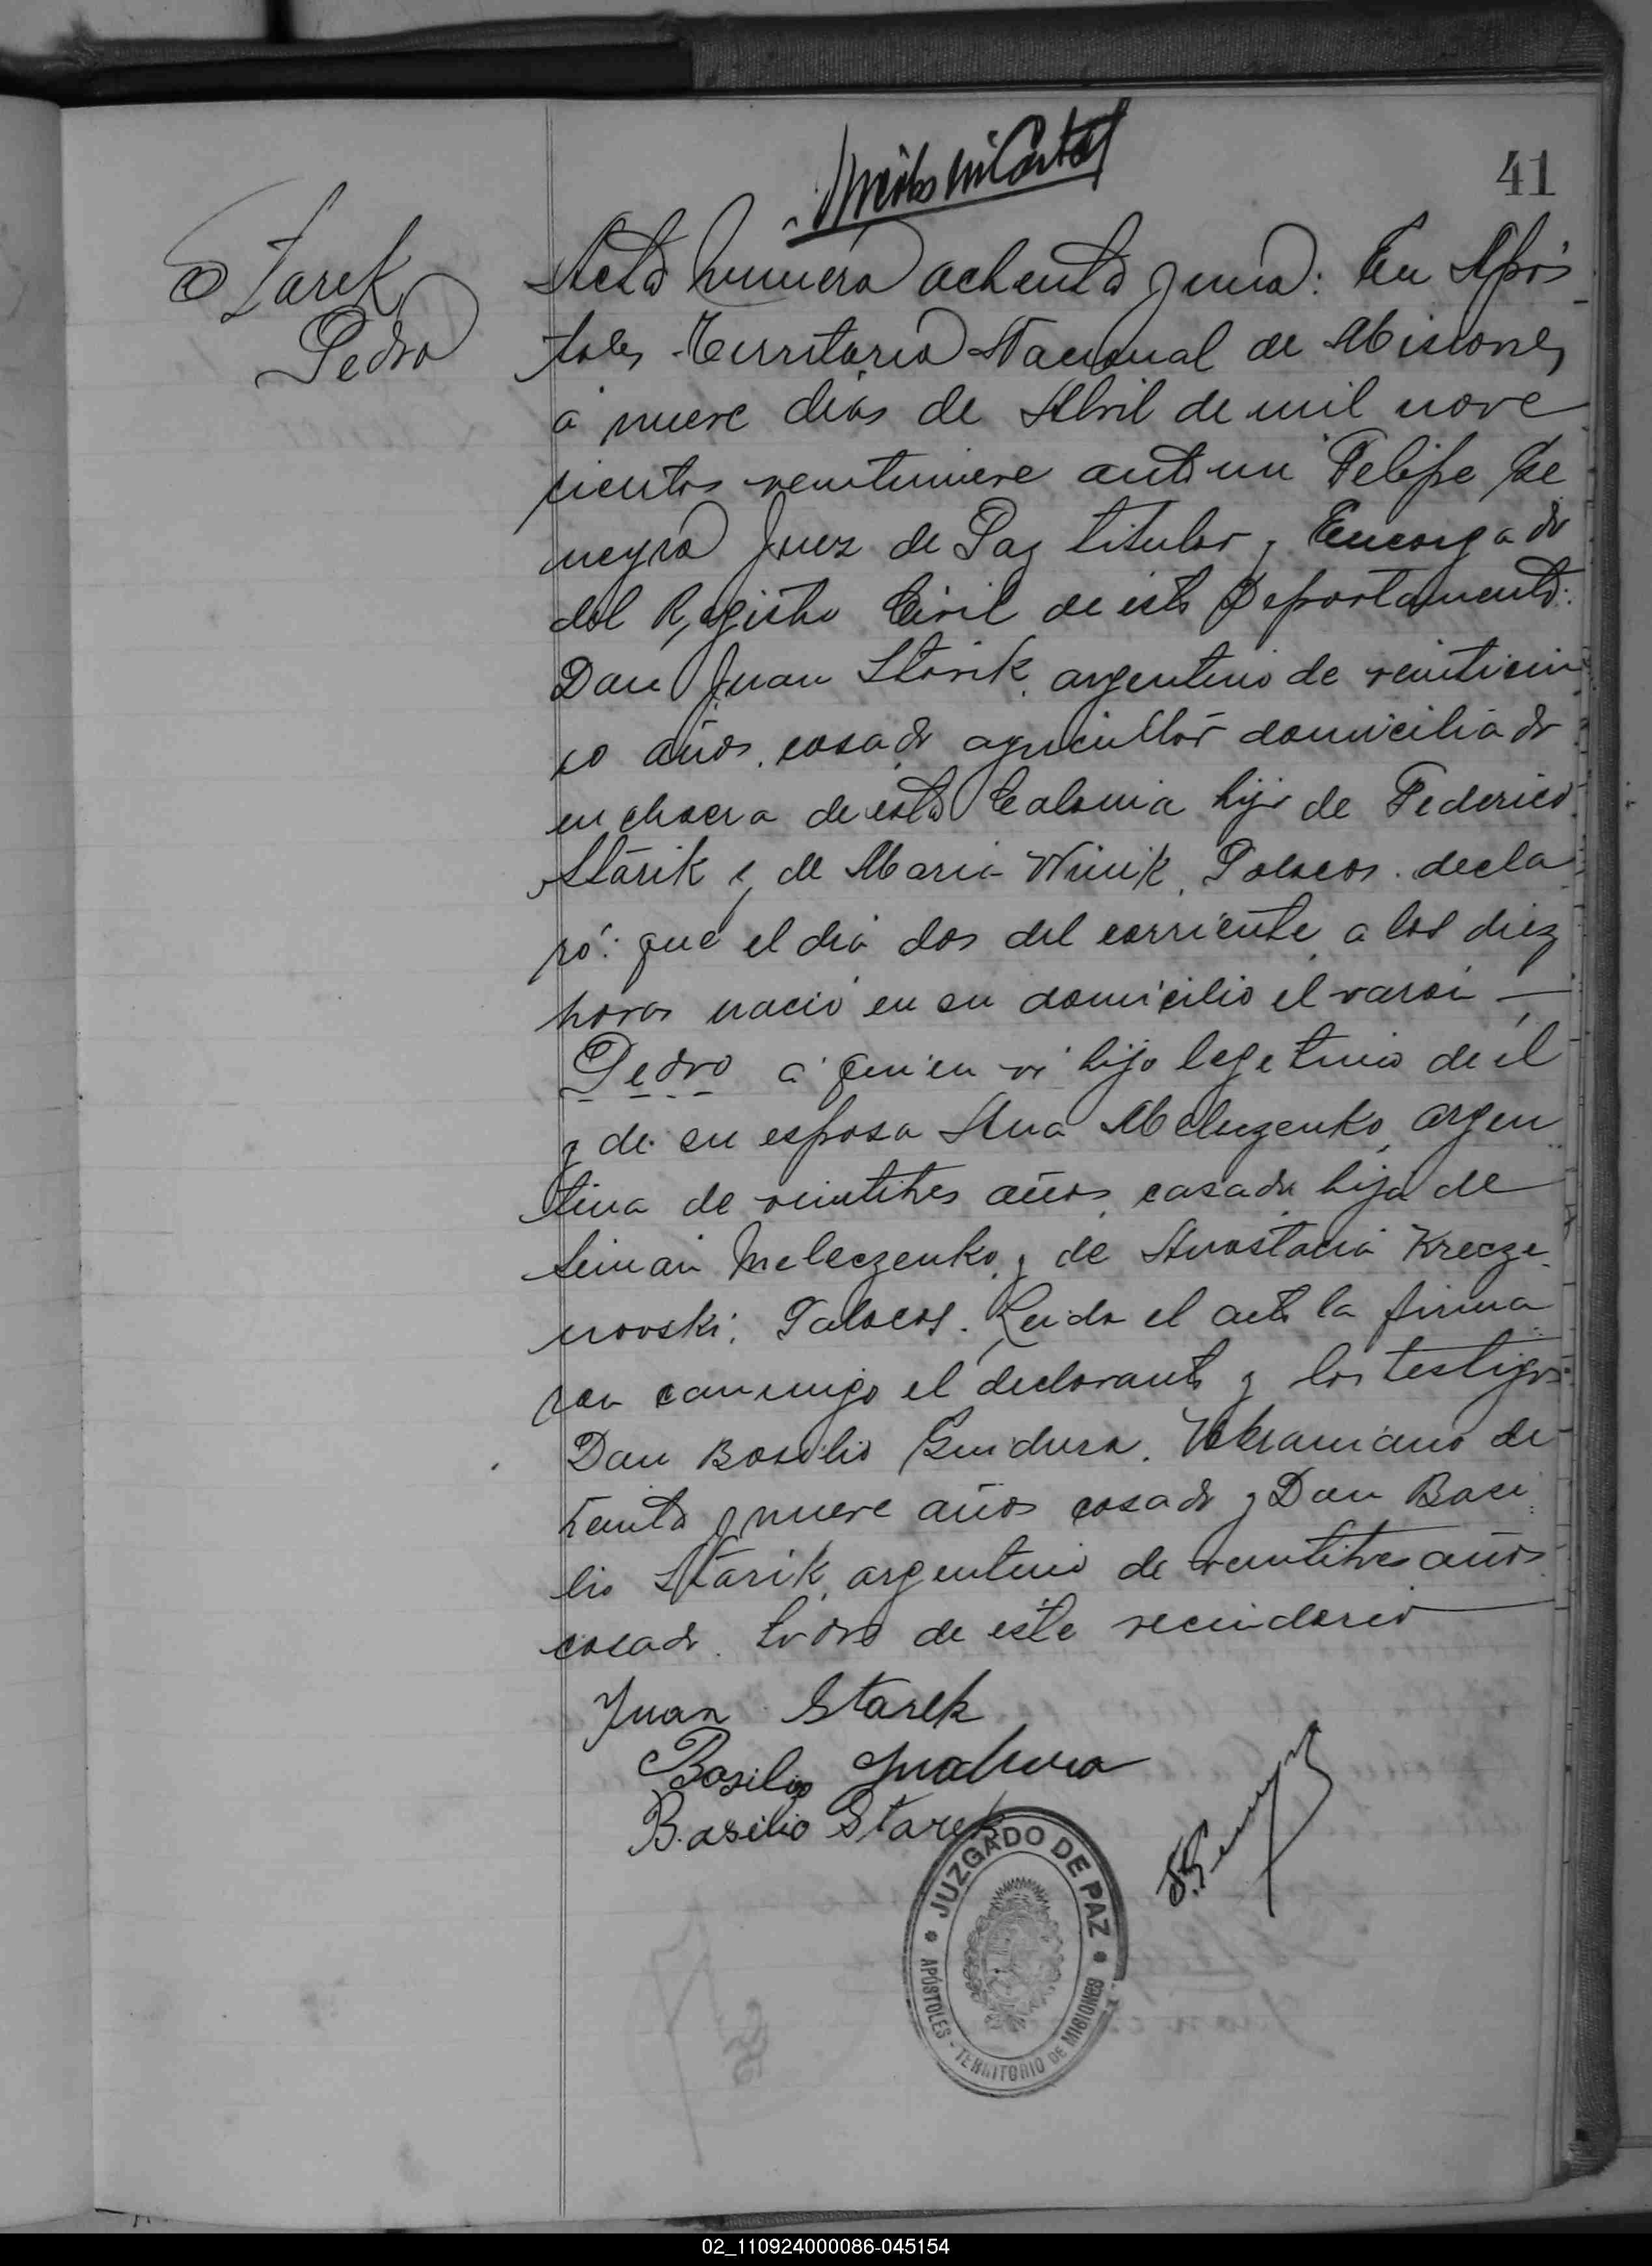 41
Starek
Pedro
Acta número ochenta y una: En Após
toles Territorio Nacional de Misiones
a nueve dias de Abril de mil nove
cientos veintinueve ante mi Felipe Pe
neyra Juez de Paz titular y Encargado
del Registro Civil de este Departamento:
Don Juan Starik, argentino de veinticin
co años, casado, agricultor domiciliado
en chacra de esta Colonia hijo de Federico
Starik y de Maria Winik, Polacos. decla
ró: que el dia dos del corriente, a las diez
horas nació en su domicilio el varon —
Pedro a quien vi hijo legetimo de él
y de su esposa Ana Meleczenko, argen
tina de veintitres años, casada hija de
Simon Meleczenko y de Anastacia Krecze
novski; Polacos. Leida el acta la firma
ron conmigo el declarante y los testigos
Don Basilio Gudura. Ukraniano de
treinta y nueve años casado y Don Basi
lio Starik, argentino de veintitres años
casado. todos de este vecindario
Juan Starek
Basilio
Basilio Starek
JUZGADO DE PAZ
APÓSTOLES - TERRITORIO DE MISIONES
02_110924000086-045154